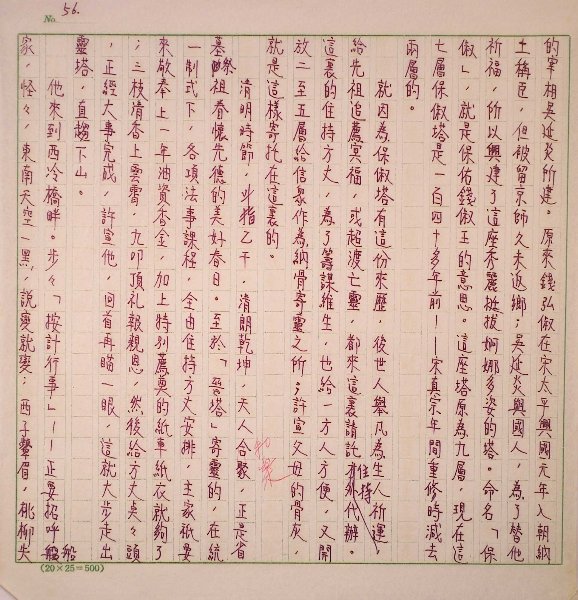 No. 56.
的宰相吳延炎所建。原來錢弘俶在宋太平興國元年入朝納
土稱臣，但被留京師久未返鄉；吳延炎興國人，為了替他
祈福，所以興建了這座秀麗挺拔婀娜多姿的塔。命名「保
俶」，就是保佑錢俶王的意思。這座塔原為九層，現在這
七層保俶塔是一百四十多年前——宋真宗年間重修時減去
兩層的。
就因為保俶塔有這份來歷，後世人舉凡為生人祈運，
給先祖追薦冥福，或超渡亡靈，都來這裏請託住持代辦。
這裏的住持方丈，為了籌謀維生，也給一方人方便，又開
放二至五層給信眾作為納骨寄靈之所，許宣父母的骨灰，
就是這樣寄托在這裏的。
清明時節，斗指乙干，清朗乾坤，天人合聚，正是省
和聚
墓祭祖眷懷先德的美好春日。至於「晉塔」寄靈的，在統
一制式下，各項法事課程，全由住持方丈安排，主家祇要
來敬奉上一年油資香金，加上特別薦奠的紙車紙衣就夠了
；三枝清香上雲霄，九叩頂礼報親恩，然後給方丈矣々頭
，正經大事完成，許宣他，回首再瞄一眼，這就大步走出
靈塔，直趨下山。
他來到西冷橋畔。步々「按計行事」——正要招呼船
家，怪々，東南天空一黑，說變就變；西子顰眉，桃柳失
(20×25=500)